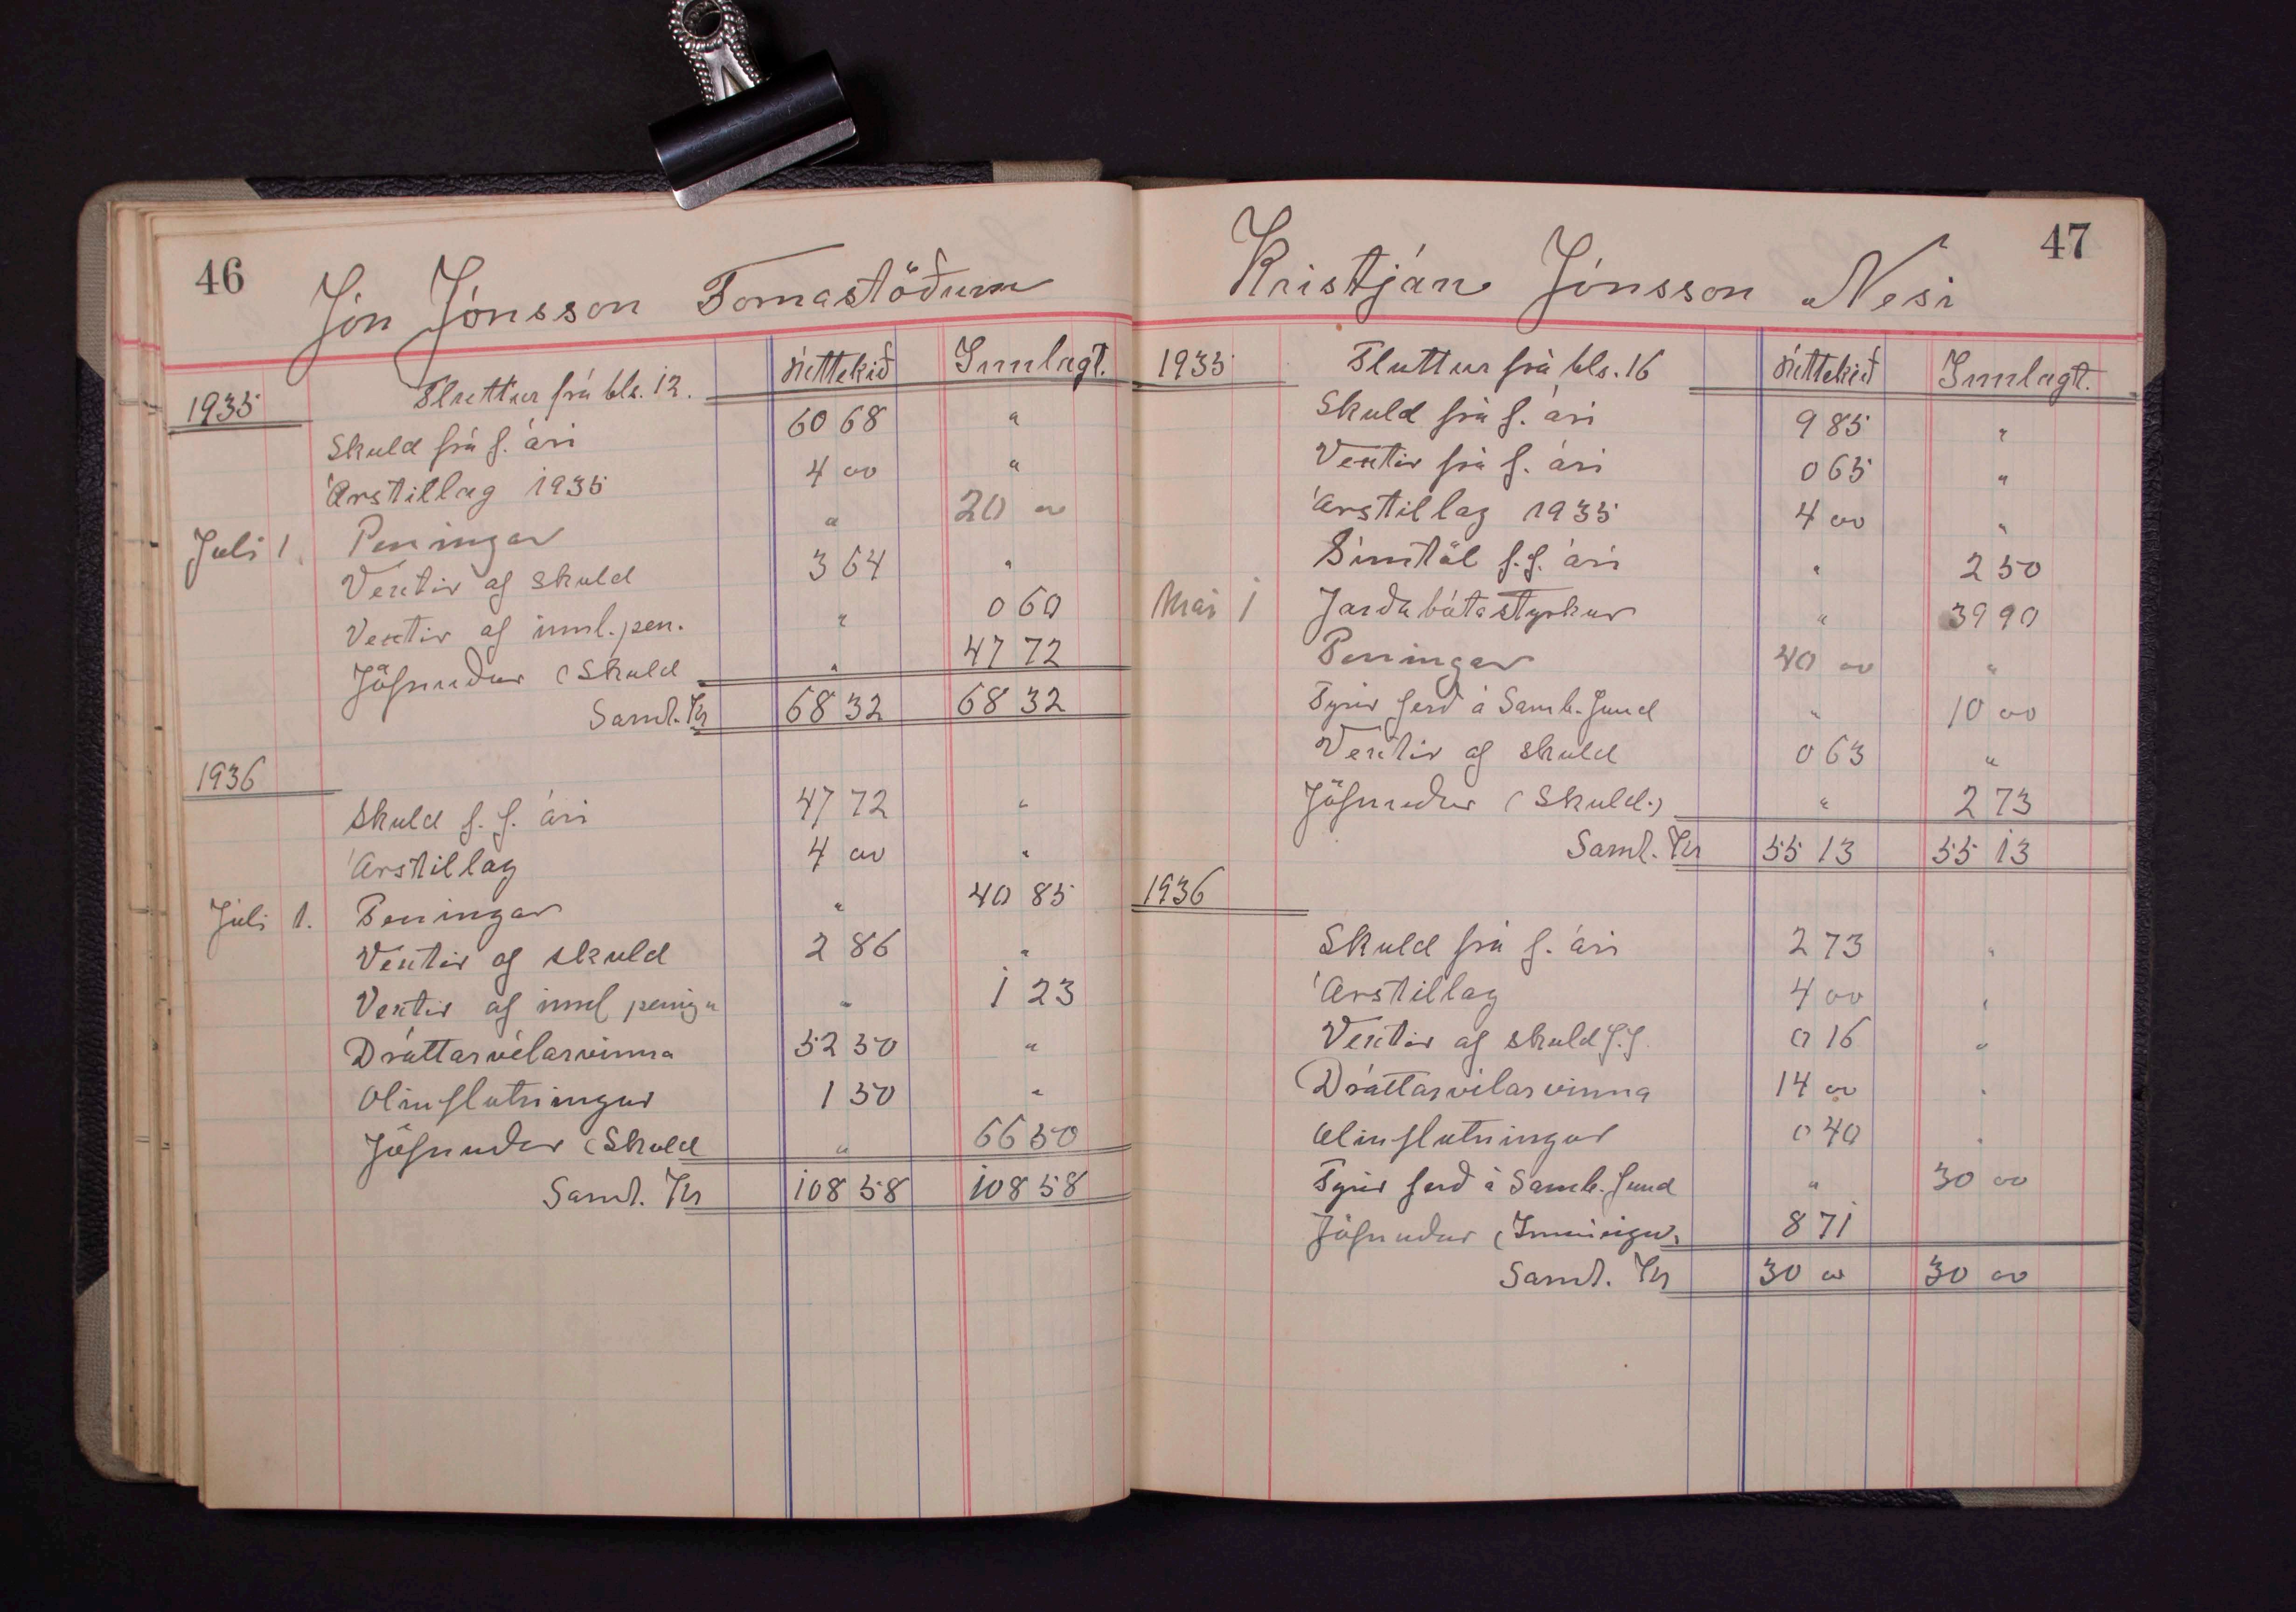 46
Jón Jónsson Tomastöðum
Úttekið Innlagt.
1935 Fluttur frá bls. 12.
Skuld frá f. ári 60 68 "
Árstillag 1935 4 00 "
Juli 1. Peningar " 20 00
Vextir af skuld 3 64 "
Vextir af innl. pen. " 0 60
Jöfnuður (Skuld " 47 72
Saml. Kr 68 32 68 32
1936
Skuld f. f. ári 47 72 "
Árstillag 4 00 "
Júlí 1. Peningar " 40 85
Vextir af skuld 2 86 "
Vextir af innl peninga " 1 23
Dráttarvélarvinna 52 50 "
Olíuflutningur 1 50 "
Jöfnuður (Skuld " 66 50
Saml. Kr 108 58 108 58
47
Kristján Jónsson Nesi
1935 Fluttur frá bls. 16 Úttekið Innlagt.
Skuld frá f. ári 9 85 "
Vextir frá f. ári 0 65 "
Árstillag 1935 4 00 "
Símtöl f. f. ári " 2 50
Mai 1 Jarðabótastyrkur " 39 90
Peningar 40 00 "
Fyrir ferð á Samb. fund " 10 00
Vextir af skuld 0 63 "
Jöfnuður (Skuld.) " 2 73
Saml. Kr 55 13 55 13
1936
Skuld frá f. ári 2 73 "
Árstillag 4 00 "
Vextir af skuld f.f. 0 16 "
Dráttarvélarvinna 14 00 "
Olíuflutningur 0 40 "
Fyrir ferð á Samb. fund " 30 00
Jöfnuður (Inneign. 8 71
Saml. Kr 30 00 30 00